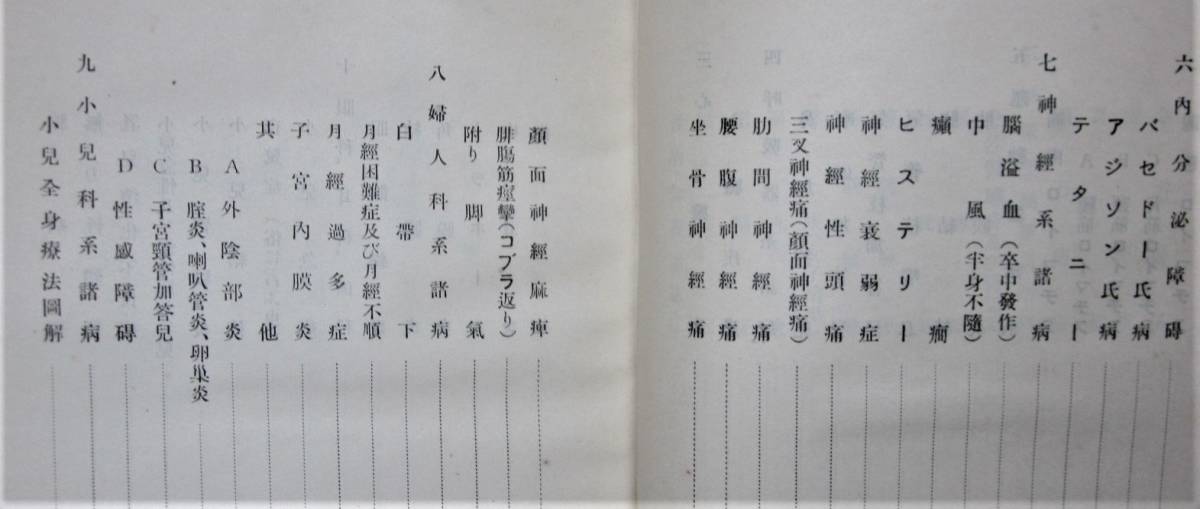 六 内分泌障碍
バセドー氏病
アジソン氏病
テタニー
七 神經系諸病
腦溢血（卒中發作）
中風（半身不隨）
癲癇
ヒステリー
神經衰弱症
神經性頭痛
三叉神經痛（顏面神經痛）
肋間神經痛
腰腹神經痛
坐骨神經痛
顏面神經麻痺
腓膓筋痙攣（コブラ返り）
附り脚氣
八 婦人科系諸病
白帶下
月經困難症及び月經不順
月經過多症
子宮內膜炎
其他
A 外陰部炎
B 腟炎、喇叭管炎、卵巢炎
C 子宮頸管加答兒
D 性感障碍
九 小兒科系諸病
小兒全身療法圖解